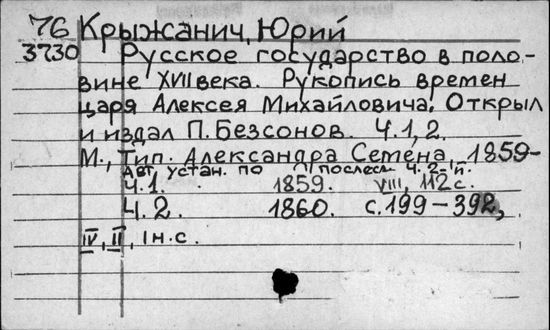 76 Крыжанич, Юрий
3730 Русское государство в поло-
вине XVII века. Рукопись времен
царя Алексея Михайловича. Открыл
и издал П. Безсонов. Ч.1, 2.
М., тип. Александра Семена, 1859-
Авт. устан. по послесл. Ч. 2-й.
Ч.1. 1859. VIII, 112 с.
Ч.2. 1860. с. 199-392,
IV, II, 1 н.с.